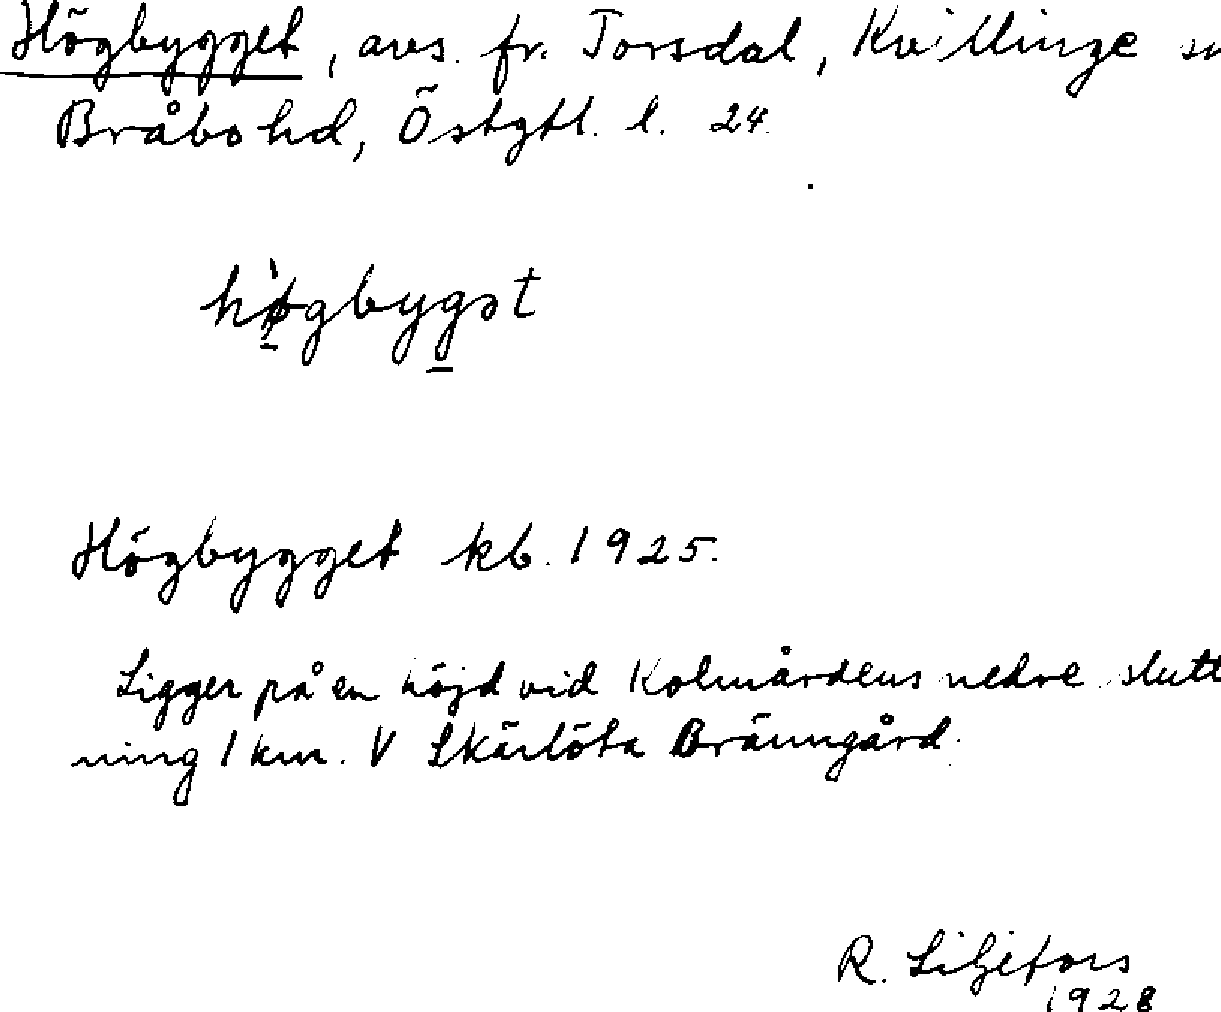 Högbygget, avs. fr. Torsdal, Kvillinge sn
Bråbo hd, Östgtl. l. 24.
hø̀gbygət
Högbygget kb. 1925.
Ligger på en höjd vid Kolmårdens nedre slutt
ning 1 km. V Skärlöta Bränngård.
R. Liljefors
1928